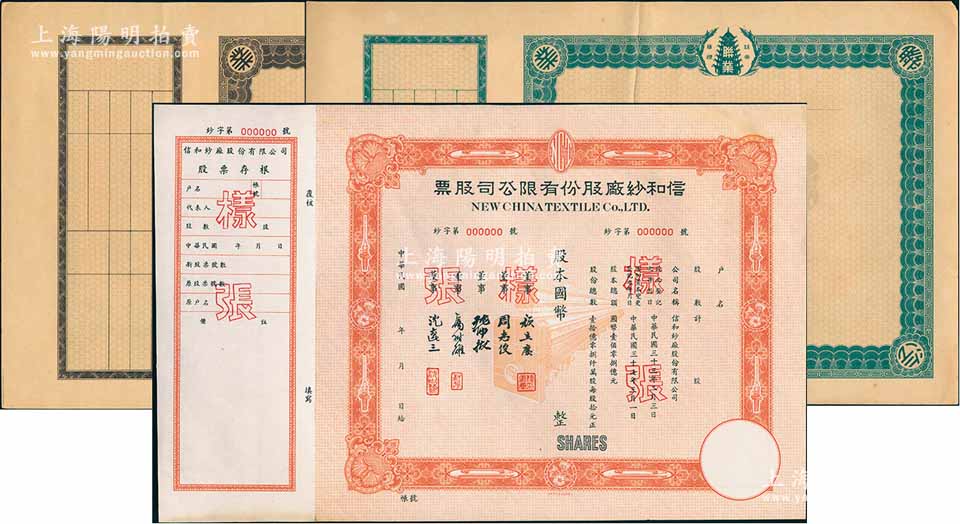 上海陽明拍賣
www.yangmingauction.com
上海陽明拍賣
www.yangmingauction.com
聯業
紗字第 000000 號
信和紗廠股份有限公司
股票存根
戶名
帳號
代表人
股數
股
中華民國 年 月 日
新股票號數
原股票號數
原戶名
備註
樣
張
填寫
票股司公限有份股廠紗和信
NEW CHINA TEXTILE Co., LTD.
紗字第 000000 號
紗字第 000000 號
戶名
股數計 股
公司名稱 信和紗廠股份有限公司
中華民國三十七年三月一日
股本總額 國幣壹佰零捌億元
股份總數 壹拾億零捌仟萬股每股拾元正
股本國幣
整
董事
董事 周志俊
董事
董事
董事
中華民國 年 月 日給
樣
張
樣
張
SHARES
帳號
上海陽明拍賣